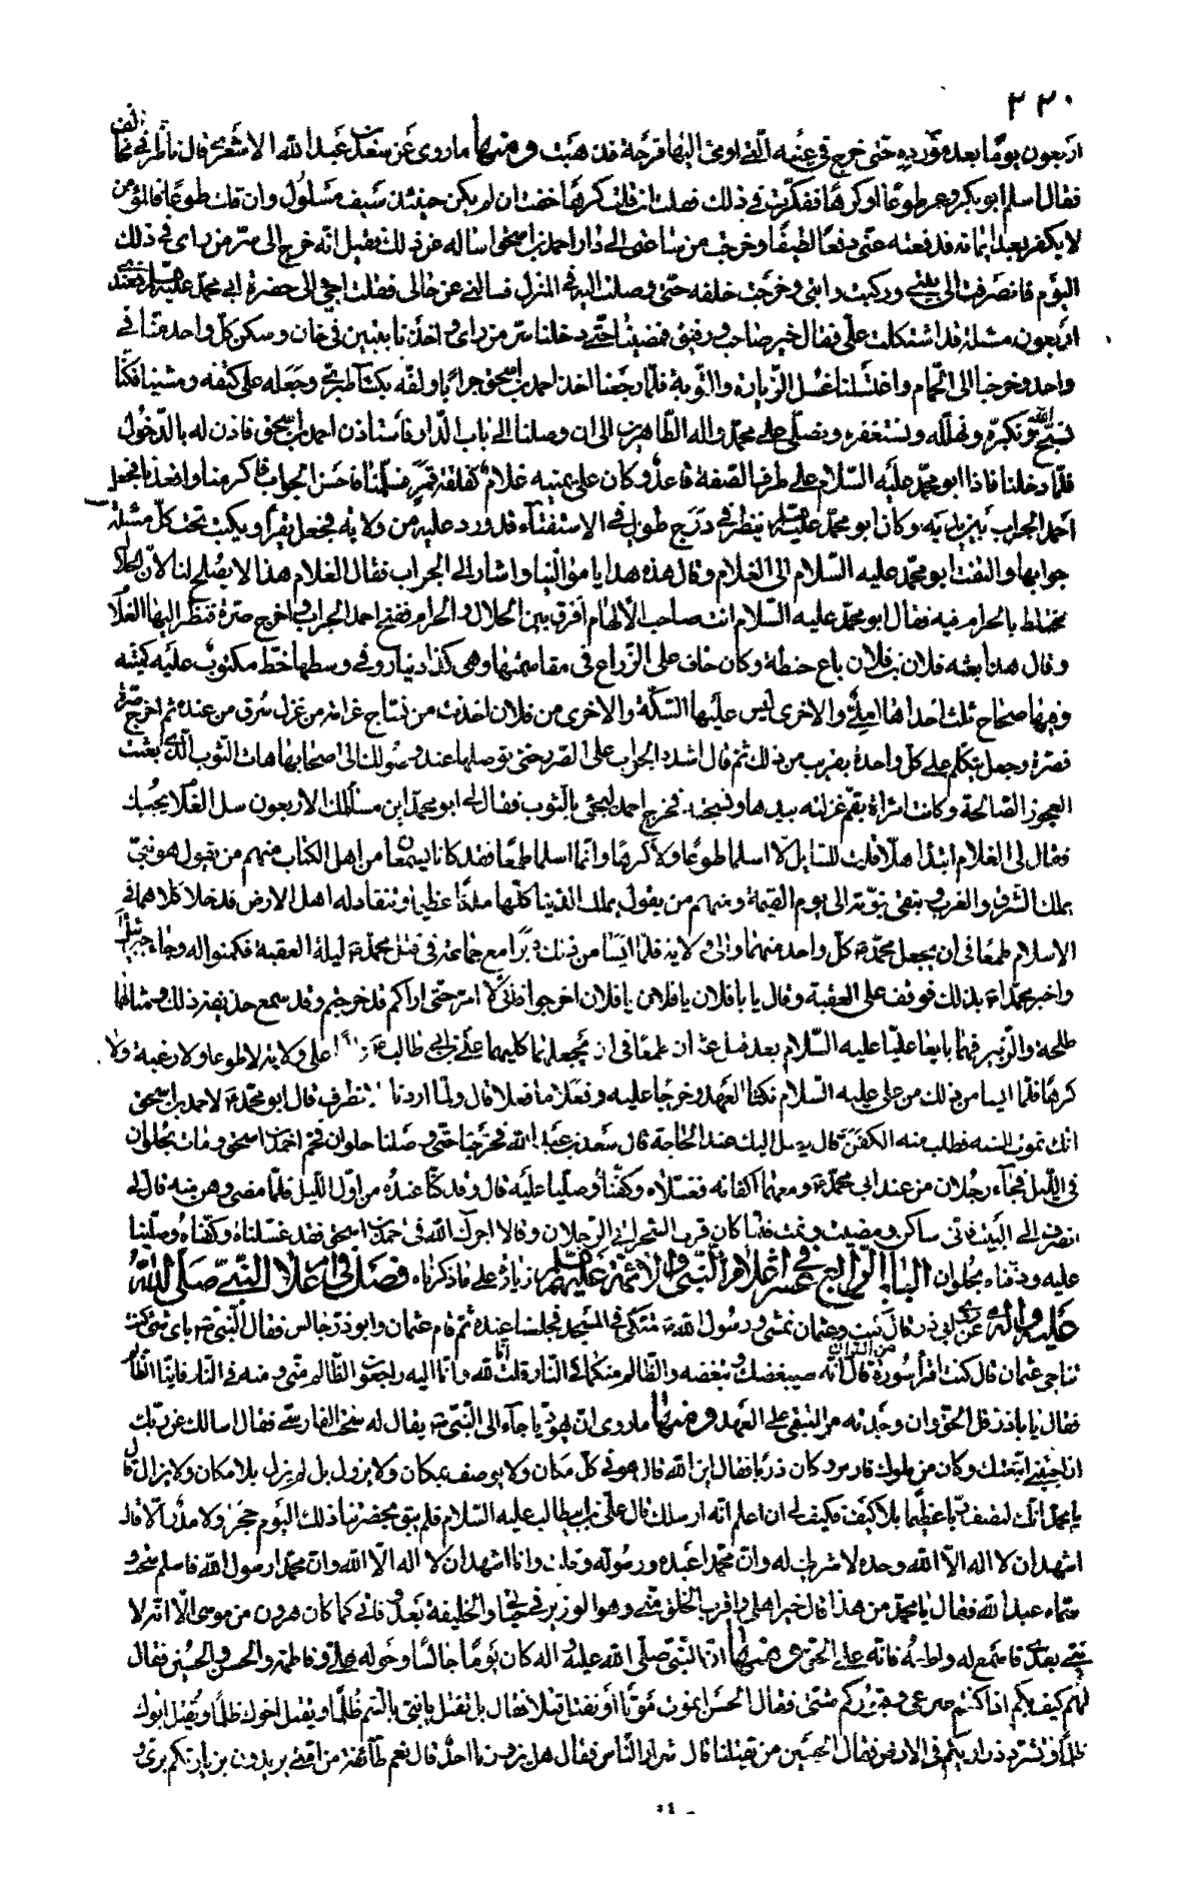 ٢٢٠
اربعون يوما بعد مؤديه حتى خرج في عينه التى اومى اليها قرحة فذهبت ومنها ما روى عن سعد بن عبد الله الاشعرى قال ناظرنى مخالف
فقال اسلم ابو بكر وعمر طوعا او كرها ففكرت في ذلك فقلت ان قلت كرها خفت ان لم يكن حينئذ سيف مسلول وان قلت طوعا فالمؤمن
لا يكفر بعد ايمانه فدفعته عنى دفعا لطيفا وخرجت من ساعتى الى دار احمد بن اسحق اساله عن ذلك فقيل انه خرج الى سر من راى في ذلك
اليوم فانصرفت الى بيتى وركبت دابتى وخرجت خلفه حتى وصلت اليه في المنزل فسالنى عن حالى فقلت اجئ الى حضرة ابى محمد عليه السلم فعندى
اربعون مسئلة قد اشكلت على فقال خير صاحب ورفيق فمضينا حتى دخلنا سر من راى واخذنا بيتين في خان وسكن كل واحد منا في
واحد وخرجنا الى الحمام واغتسلنا غسل الزيارة والتوبة فلما رجعنا اخذ احمد بن اسحق جرابا ولفه بكساء طبرى وجعله على كتفه ومشينا فكنا
نسبح الله ونكبره ونهلله ونستغفره ونصلى على محمد واله الطاهرين الى ان وصلنا الى باب الدار فاستاذن احمد بن اسحق فاذن له بالدخول
فلما دخلنا فاذا ابو محمد عليه السلام على طرف الصفة قاعد وكان على يمينه غلام كفلقة قمر فسلمنا فاحسن الجواب فاكرمنا واقعدنا فجعل
احمد الجراب بين يديه وكان ابو محمد عليه السلم ينظر في درج طويل في الاستفتاء قد ورد عليه من ولاية فجعل يقرأ ويكتب تحت كل مسئلة
جوابها والتفت ابو محمد عليه السلام الى الغلام وقال هذه هدايا موالينا واشار الى الجراب فقال الغلام هذا لا يصلح لنا لان الحلال
مختلط بالحرام فيه فقال ابو محمد عليه السلام انت صاحب الالهام افرق بين الحلال والحرام ففتح احمد الجراب واخرج صرة فنظر اليها الغلام
وقال هذا بعثه فلان بن فلان باع حنطة وكان خاف على الزراع في مقاسمتها وهى كذا دينار وفي وسطها خط مكتوب عليه كميته
وفيها صحاح ثلث احدها املى والاخرى ليس عليها السكة والاخرى من فلان اخذت من نساج غرامة من غزل سرق من عنده ثم اخرج صرة
فصرة وجعل يتكلم على كل واحدة بقريب من ذلك ثم قال اشدد الجراب على الصرر حتى توصلها عند وصولك الى صحابها هات الثوب الذى بعثت
العجوز الصالحة وكانت امراة بقم غزلته بيدها ونسجته فخرج احمد ليجئ بالثوب فقال لى ابو محمد اين مسائلك الاربعون سل الغلام يجبك
فقال لى الغلام ابتدأ هلا قلت للسايل لا اسلما طوعا ولا كرها وانما اسلما طمعا فقد كانا يسمعان من اهل الكتاب منهم من يقول هو نبى
يملك الشرق والغرب وتبقى نبوته الى يوم القيمة ومنهم من يقول يملك الدنيا كلها ملكا عظيما وتنقاد له اهل الارض فدخلا كلاهما في
الاسلام طمعا في ان يجعل محمد ص كل واحد منهما والى ولاية فلما ايسا من ذلك دبرا مع جماعة في قتل محمد ص ليلة العقبة فكمنوا له وجاء جبرئيل
واخبر محمدا ص بذلك فوقف على العقبة وقال يا فلان يا فلان يا فلان اخرجوا فانى لا امر حتى اراكم قد خرجتم وقد سمع حذيفة ذلك ومثلهما
طلحة والزبير فهما بايعا عليا عليه السلام بعد قتل عثمان طمعا في ان يجعلهما كليهما على بن ابى طالب ع على ولاية لا طوعا ولا رغبة ولا
كرها فلما ايسا من ذلك من على عليه السلام نكثا العهد وخرجا عليه وفعلا ما فعلا قال ولما اردنا ننصرف قال ابو محمد ع لاحمد بن اسحق
انك تموت السنة فطلب منه الكفن قال يصل اليك عند الحاجة قال سعد بن عبد الله فخرجنا حتى وصلنا حلوان فحم احمد بن اسحق ومات بحلوان
في الليل فجاء رجلان من عند ابى محمد ع ومعهما اكفانه فغسلاه وكفناه وصليا عليه قال وقد كنا عنده من اول الليل فلما مضى وهن منه قال لى
انصرف الى البيت فانى ساكن ومضيت ونمت فلما كان قرب السحر اتى الرجلان وقالا اجرك الله في احمد بن اسحق فقد غسلناه وكفناه وصلينا
عليه ودفناه بحلوان الباب الرابع عشر في اعلام النبى والائمة عليهم السلم زيادة على ما ذكرناه فصل في اعلام النبى صلى الله
عليه واله روى عن ابى ذر قال نمشى ورسول الله ص متكئ في المسجد فجلسنا عنده ثم قام عثمان وابو ذر جالس فقال النبى ص باى شئ كنت
تناجى عثمان قال كنت اقرأ سورة من القران قال انه سيبغضك وتبغضه والظالم منكما في النار قلت انا لله وانا اليه راجعون الظالم منى ومنه في النار فاينا الظالم
فقال يا باذر قل الحق وان وجدته مرا تلقنى على العهد ومنها ما روى ان يهوديا جاء الى النبى ص يقال له سبخت الفارسى فقال اسالك عن ربك
ان اجبتنى اتبعتك وكان من ملوك فارس وكان ذربا فقال اين الله قال هو في كل مكان ولا يوصف بمكان ولا يزول بل لم يزل بلا مكان ولا يزال قال
يا محمد انك لتصف ربا عظيما بلا كيف فكيف لى ان اعلم انه ارسلك قال على بن ابيطالب عليه السلام فلم يبق بحضرتنا ذلك اليوم حجر ولا مدر الا قال
اشهد ان لا اله الا الله وحده لا شريك له وان محمدا عبده ورسوله وقلت وانا اشهد ان لا اله الا الله وان محمدا رسول الله فاسلم سبخت و
سماه عبد الله فقال يا محمد من هذا قال خير اهلى واقرب الخلق منى وهو الوزير في حيوتى والخليفة بعد وفاتى كما كان هرون من موسى الا انه لا
نبى بعدى فاسمع له واطعه فانه على الحق ومنها ان النبى صلى الله عليه واله كان يوما جالسا وحوله على وفاطمة والحسن والحسين فقال
لهم كيف بكم اذا كنتم صرعى وقبوركم شتى فقال الحسن انموت موتا او نقتل قتلا فقال بل تقتل يا بنى بالسم ظلما ويقتل اخوك ظلما ويقتل ابوك
ظلما وتشرد ذراريكم في الارض فقال الحسين من يقتلنا قال شرار الناس فقال هل يزورنا احد قال نعم طائفة من امتى يريدون بزيارتكم برى و